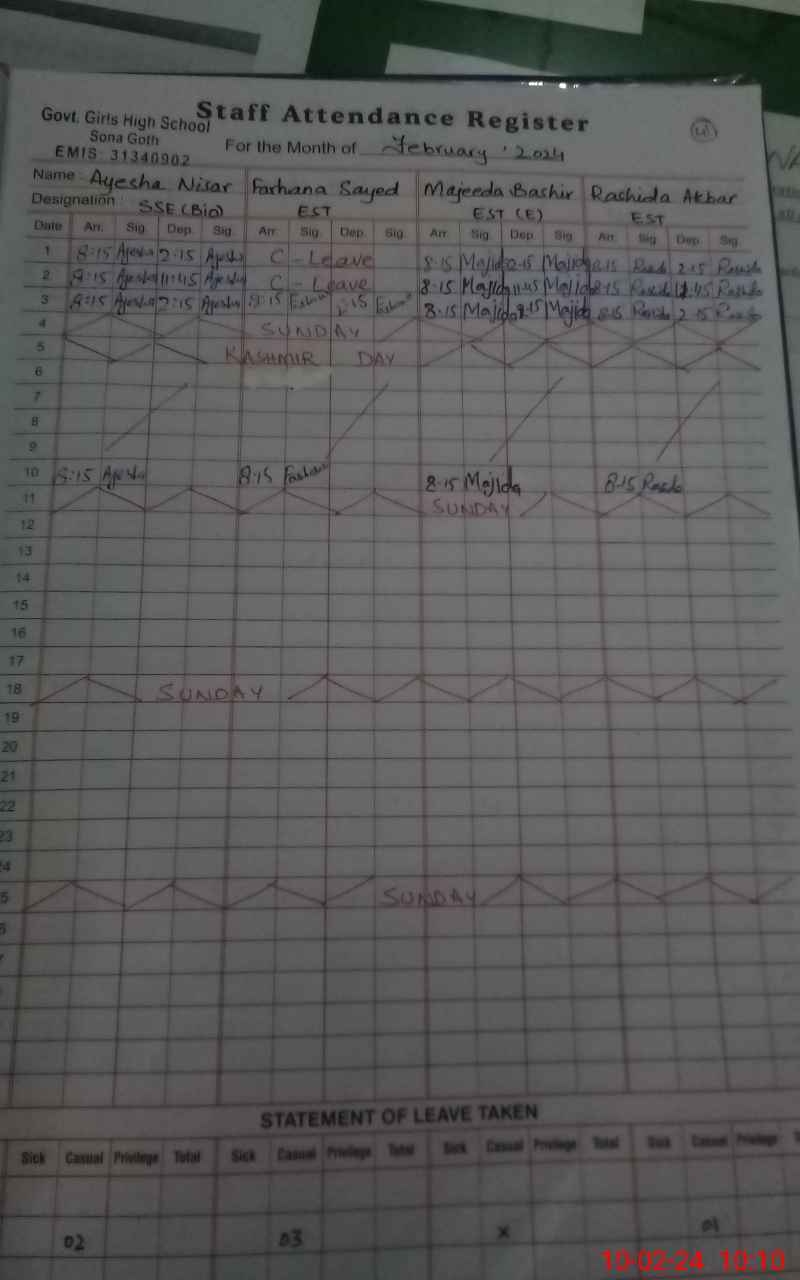 Staff Attendance Register
Govt. Girls High School
Sona Goth
EMIS: 31340902
For the Month of February '2024
Name: Ayesha Nisar Farhana Sayed Majeeda Bashir Rashida Akbar
Designation: SSE (Bio) EST EST (E) EST
Date Arr. Sig. Dep. Sig. Arr. Sig. Dep. Sig. Arr. Sig. Dep. Sig. Arr. Sig. Dep. Sig.
1 8:15 Ayesha 2:15 Ayesha C-Leave 8.15 Majida 2.15 Majida 8.15 2.15
2 8:15 Ayesha 11:45 Ayesha C-Leave 8.15 Majida 11.45 Majida 8.15 11.45
3 8:15 Ayesha 2:15 Ayesha 8:15 2:15 8.15 Majida 2.15 Majida 8.15 2.15
4 SUNDAY
5 KASHMIR DAY
6
7
8
9
10 8:15 Ayesha 8:15 8.15 Majida 8.15
11 SUNDAY
12
13
14
15
16
17
18 SUNDAY
19
20
21
22
23
24
5 SUNDAY
STATEMENT OF LEAVE TAKEN
Sick Casual Privilege Total Sick Casual Privilege Total Sick Casual Privilege Total Sick Casual Privilege T
02 03 x 01
10-02-24 10:10